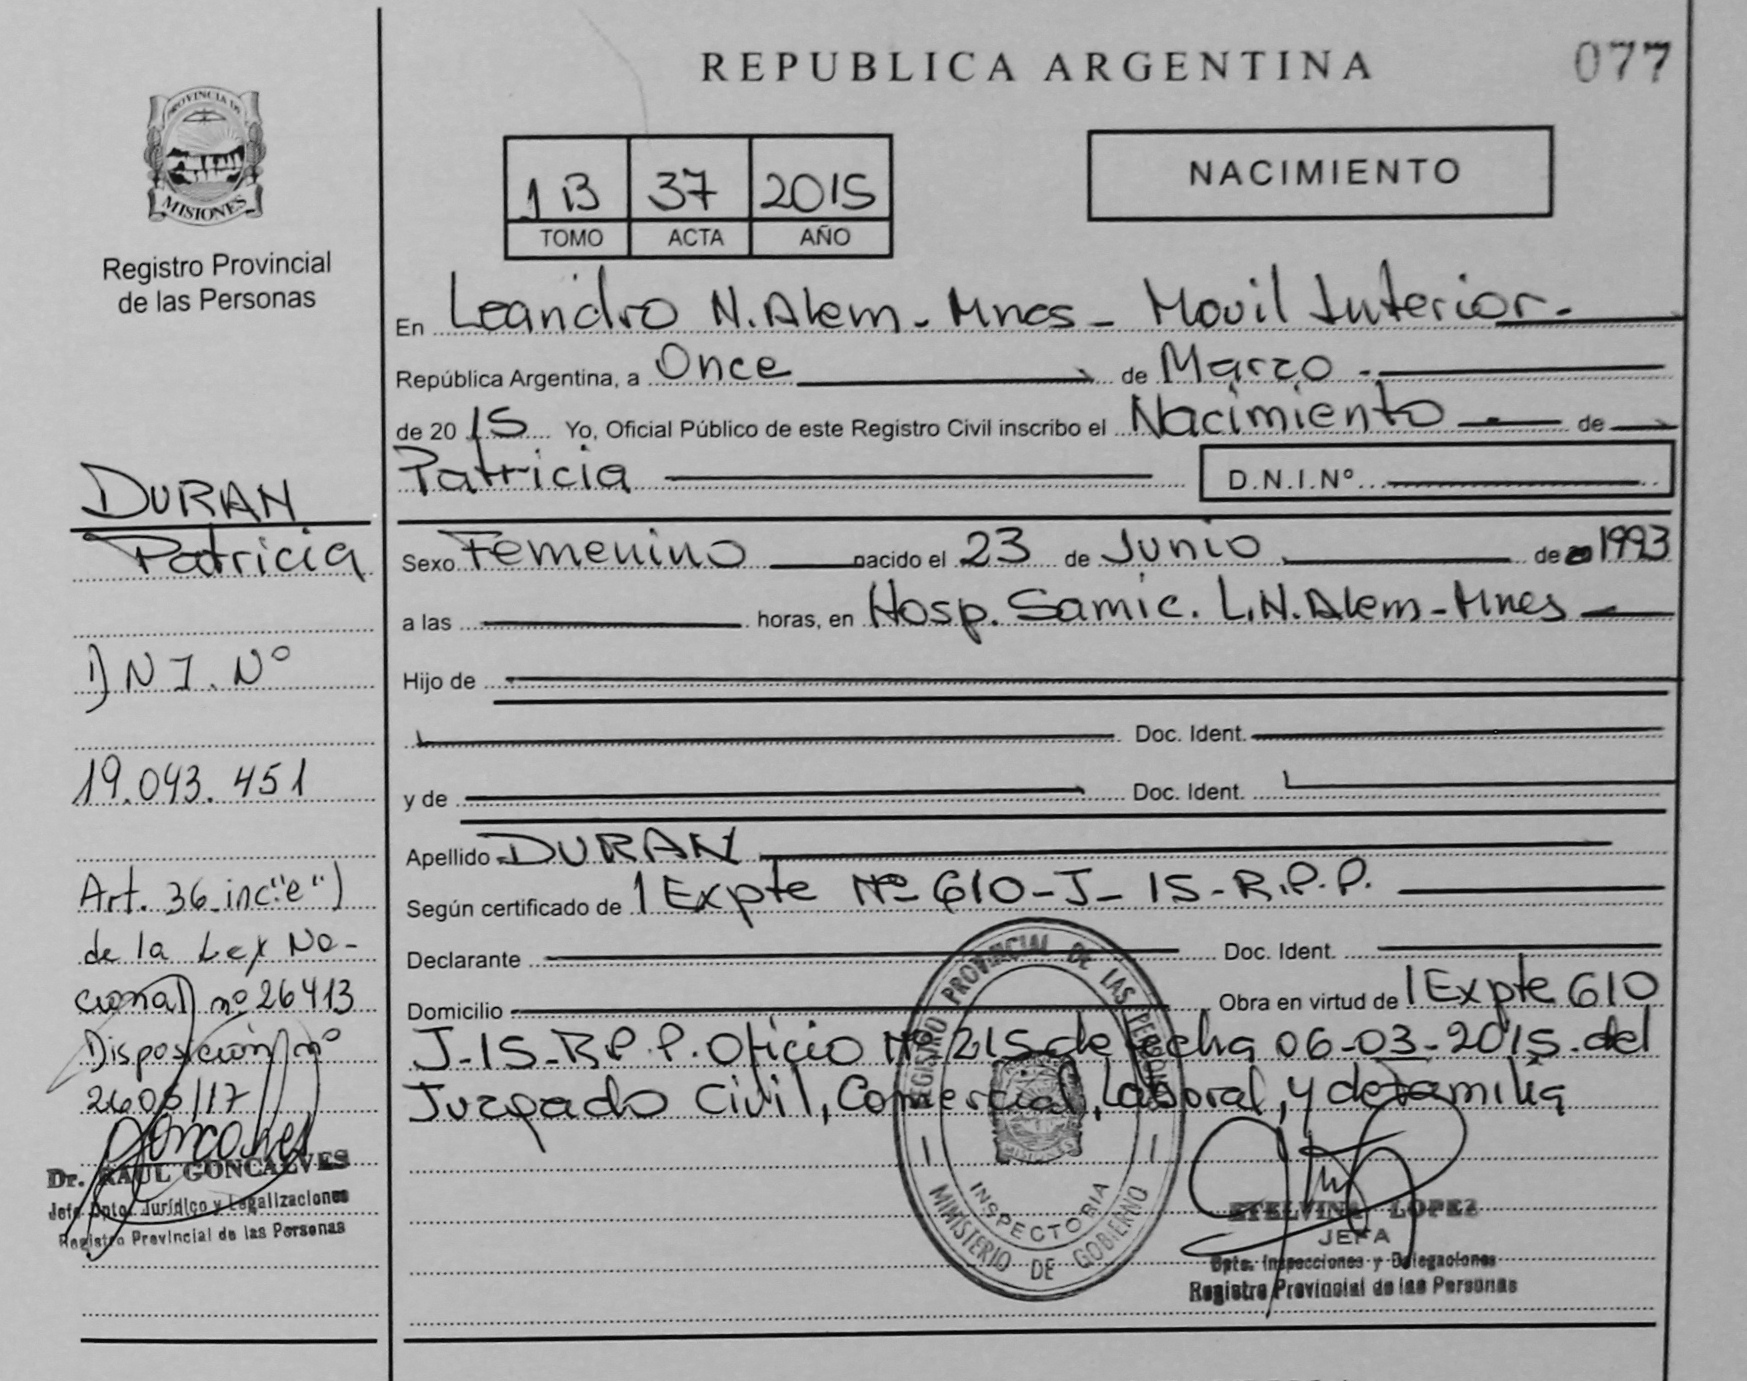 REPUBLICA ARGENTINA
077
PROVINCIA DE
MISIONES
Registro Provincial
de las Personas
1B 37 2015
TOMO ACTA AÑO
NACIMIENTO
En Leandro N. Alem - Mnes - Movil Interior.-
República Argentina, a Once de Marzo -
de 2015 Yo, Oficial Público de este Registro Civil inscribo el Nacimiento - de
Patricia D.N.I.Nº
Sexo Femenino nacido el 23 de Junio de 1993
a las horas, en Hosp. Samic. L.N.Alem - Mnes
Hijo de
Doc. Ident.
y de Doc. Ident.
Apellido DURAN
Según certificado de 1 Expte Nº 610-J-15-R.P.P.
Declarante Doc. Ident.
Domicilio Obra en virtud de 1 Expte 610
J-15-R.P.P. Oficio Nº 215 de fecha 06-03-2015. del
Juzgado Civil, Comercial, Laboral, y de familia
DURAN
Patricia
D N I. Nº
19.043.451
Art. 36 inc "e")
de la Ley Na-
cional nº 26413
Disposición nº
2606/17
Dr. RAUL GONCALVES
Jefe Dpto. Jurídico y Legalizaciones
Registro Provincial de las Personas
REGISTRO PROVINCIAL DE LAS PERSONAS
INSPECTORIA
MINISTERIO DE GOBIERNO
ETELVINA LOPEZ
JEFA
Dpto. Inspecciones y Delegaciones
Registro Provincial de las Personas